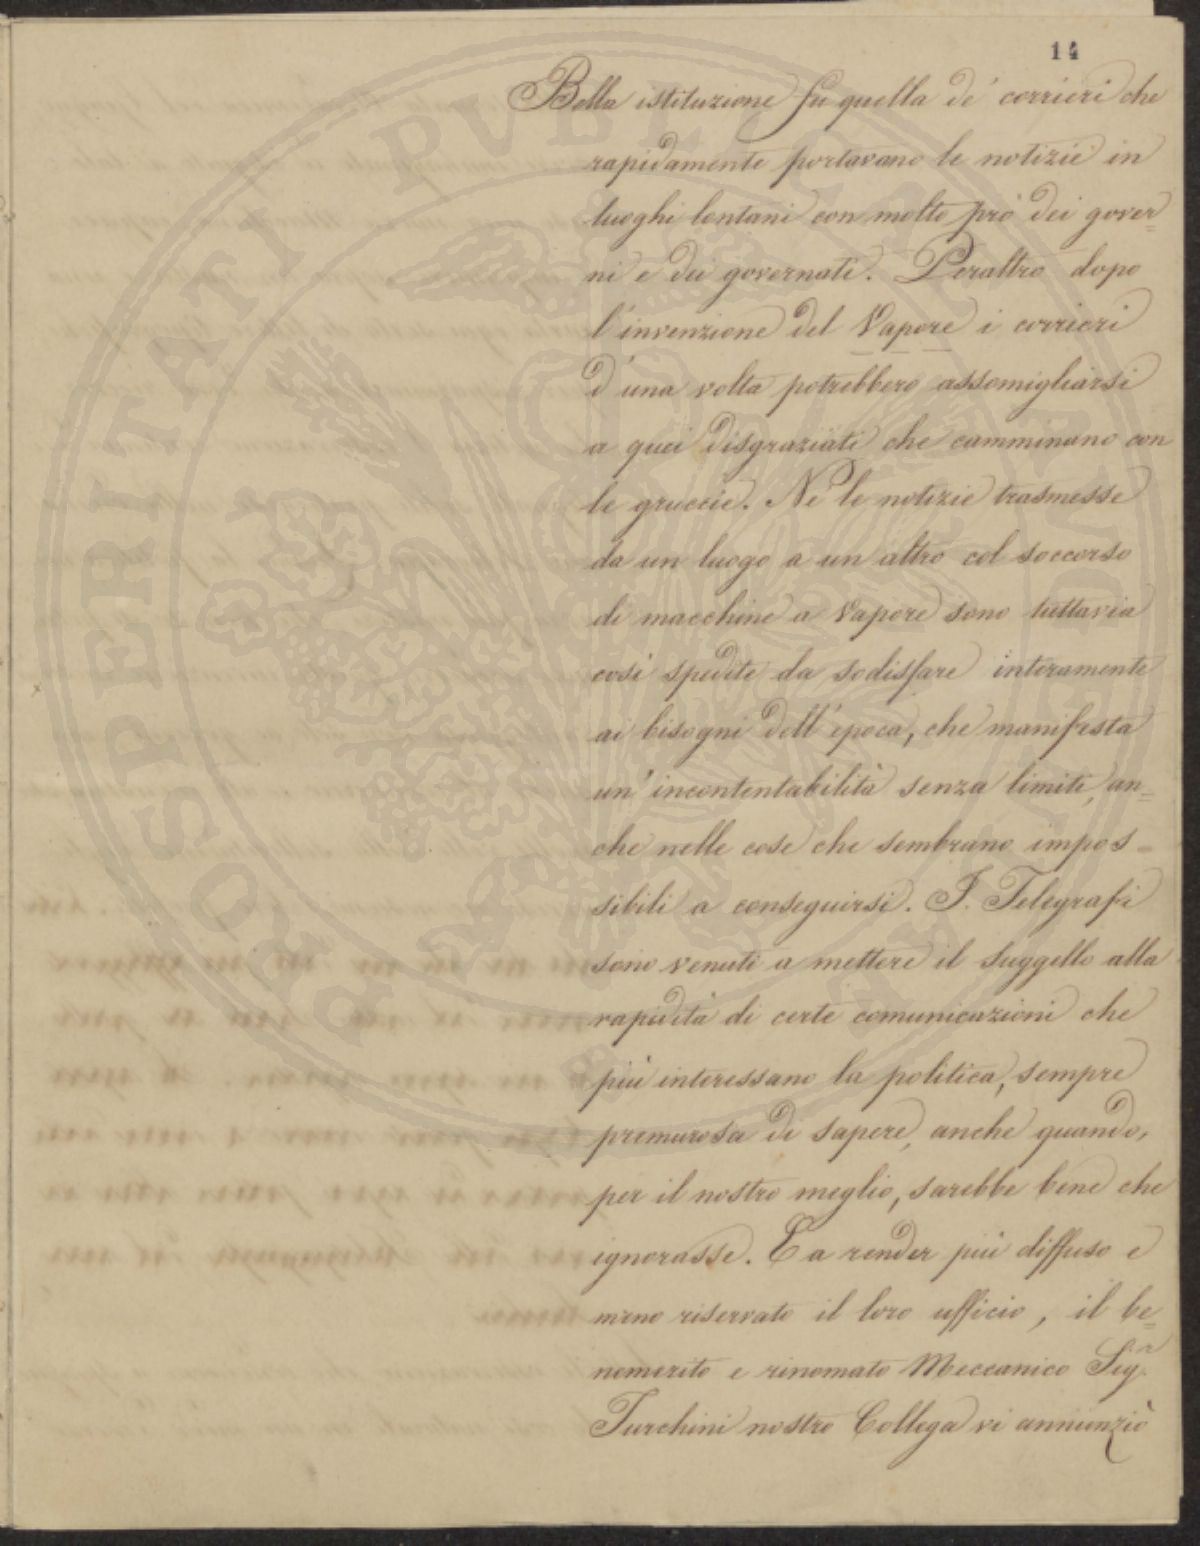 14
Bella istituzione fu quella de' corrieri che
rapidamente portavano le notizie in
luoghi lontani con molto prò dei gover=
ni e dei governati. Peraltro dopo
l'invenzione del Vapore i corrieri
d'una volta potrebbero assomigliarsi
a quei disgraziati che camminano con
le gruccie. Nè le notizie trasmesse
da un luogo a un altro col soccorso
di macchine a Vapore sono tuttavia
così spedite da sodisfare interamente
ai bisogni dell'epoca, che manifesta
un'incontentabilità senza limiti, an=
che nelle cose che sembrano impos-
sibili a conseguirsi. I. Telegrafi
sono venuti a mettere il suggello alla
rapidità di certe comunicazioni che
più interessano la politica, sempre
premurosa di sapere, anche quando,
per il nostro meglio, sarebbe bene che
ignorasse. E a render più diffuso e
meno riservato il loro ufficio, il be=
nemerito e rinomato Meccanico Sigr.
Turchini nostro Collega vi annunziò
PROSPERITATI PVBLICAE